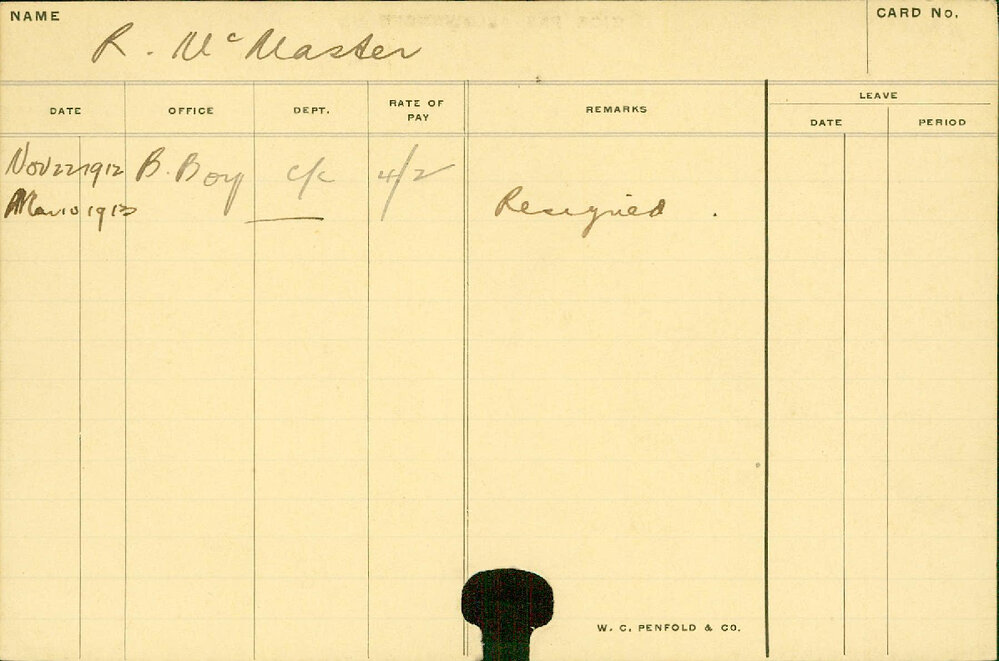 NAME
R. McMaster
CARD No.
DATE OFFICE DEPT. RATE OF PAY REMARKS LEAVE
DATE PERIOD
Nov 22 1912 B. Boy c/c 4/2
Mar 10 1913 Resigned.
W. C. PENFOLD & CO.